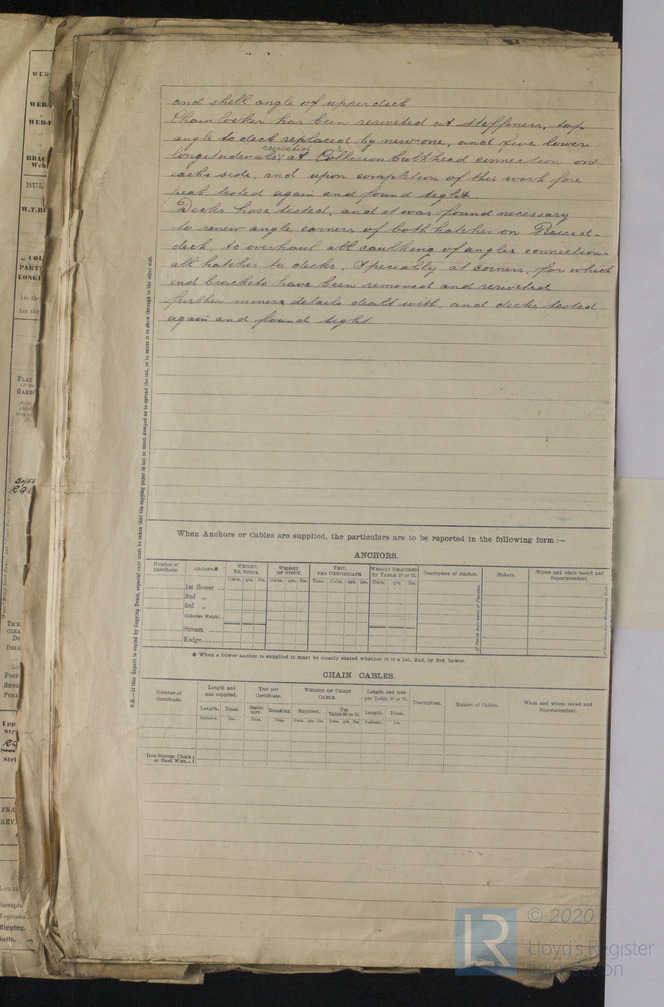 and shell angle of upper deck
Chain locker has been reriveted at stiffiners, top
angle to deck replaced by new one, and five lower
reriveted
longitudinals at Collision bulkhead connection on
each side, and upon completion of this work fore
peak tested again and found tight.
Decks hose tested, and it was found necessary
to renew angle corners of both hatches on Raised-
deck, to overhaul all caulking of angles connections
all hatches to decks, specially at corners, for which
end brackets have been removed and reriveted
further minor details dealt with, and decks tested
again and found tight.
When Anchors or Cables are supplied, the particulars are to be reported in the following form :—
ANCHORS.
Number of Certificate.
Anchors.*
WEIGHT, EX. STOCK.
WEIGHT OF STOCK.
TEST, PER CERTIFICATE.
WEIGHT REQUIRED BY TABLE 30 or 31.
Description of Anchor.
Makers.
Where and when tested and Superintendent.
Cwts. qrs. lbs. Cwts. qrs. lbs. Tons. Cwts. qrs. lbs. Cwts. qrs. lbs.
1st Bower ...
2nd „
3rd „
Collective Weight.
Stream ......
Kedge......
* When a bower anchor is supplied it must be clearly stated whether it is a 1st, 2nd, or 3rd bower.
CHAIN CABLES.
Number of Certificate.
Length and size supplied.
Test per Certificate.
WEIGHT OF CHAIN CABLE.
Length and size per Table 30 or 31.
Description.
Makers of Cables.
When and where tested and Superintendent.
Length. Diam. Statutory. Breaking. Supplied. Per Table 30 or 31. Length. Diam.
Fathoms. Ins. Tons. Tons. Cwts. qrs. lbs. Cwts. qrs. lbs. Fathoms. Ins.
Iron Stream Chain or Steel Wire...
N.B.—If this Report is copied by Copying Press, especial care must be taken that the copying paper is not so much damped as to spread the ink, or to cause it to show through to the other side.
LR
© 2020
Lloyd's Register
Foundation